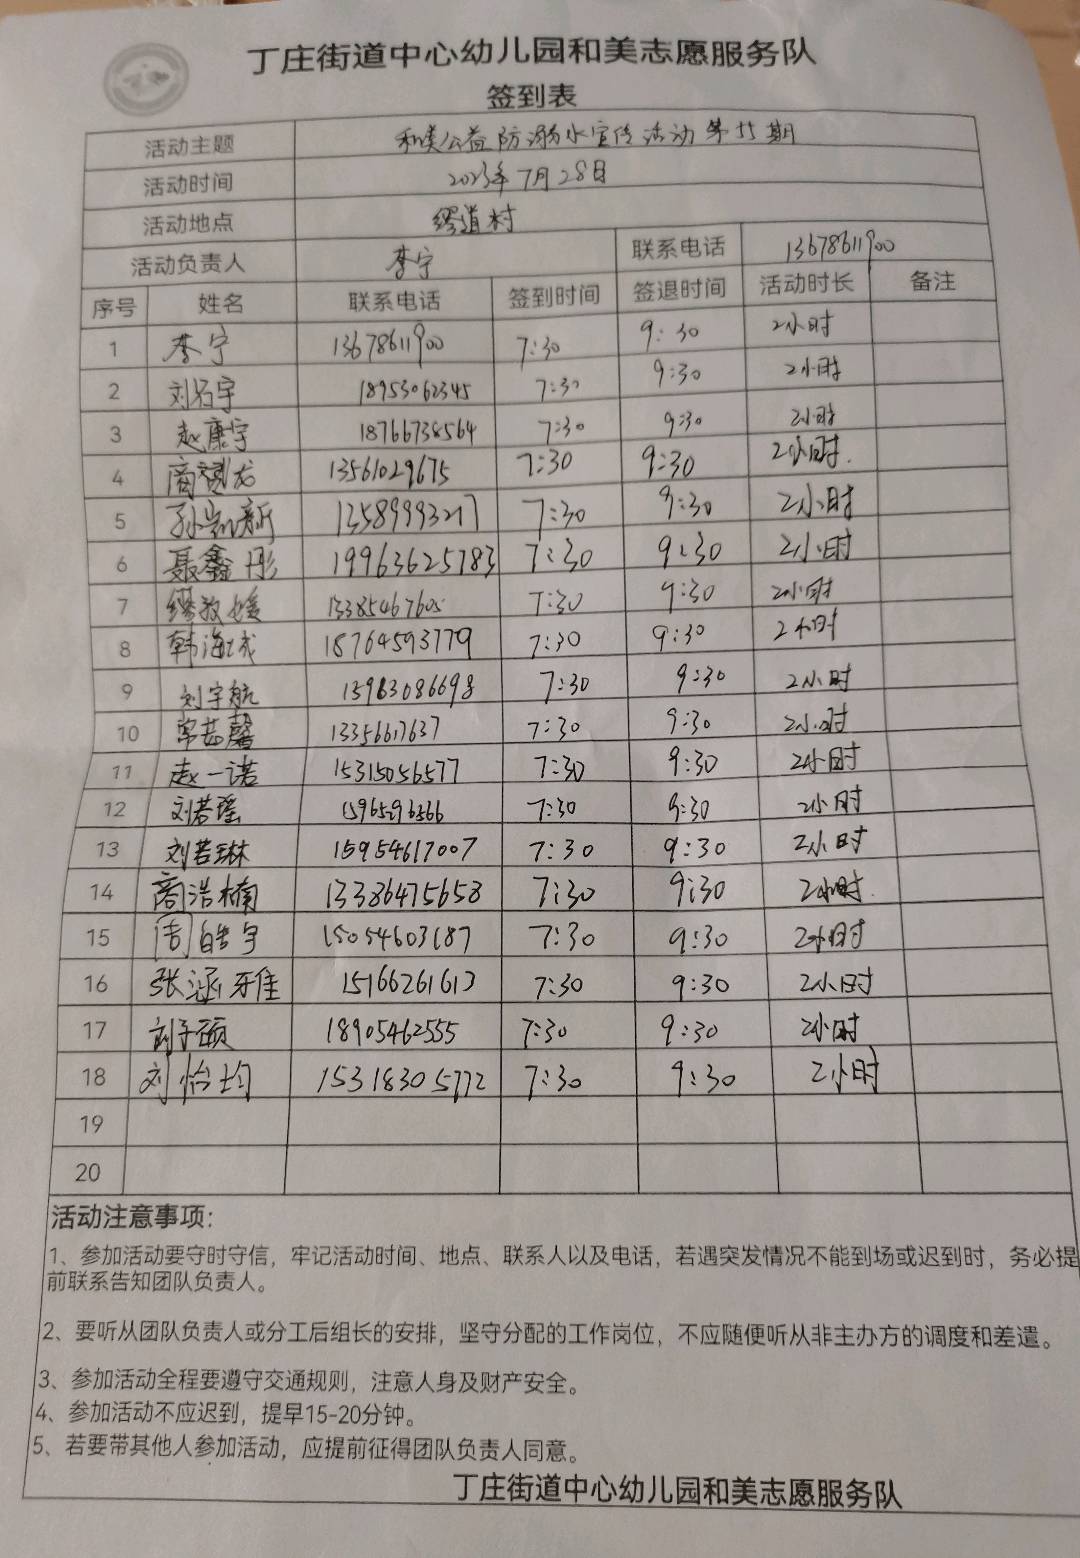 丁庄街道中心幼儿园和美志愿服务队
签到表
活动主题 和美公益防溺水宣传活动第55期
活动时间 2023年7月28日
活动地点 缪道村
活动负责人 李宁 联系电话 13678611900
序号 姓名 联系电话 签到时间 签退时间 活动时长 备注
1 李宁 13678611900 7:30 9:30 2小时
2 刘若宇 18953062345 7:30 9:30 2小时
3 赵康宇 18766734564 7:30 9:30 2小时
4 商赟龙 13561029675 7:30 9:30 2小时.
5 孙凯新 13589993217 7:30 9:30 2小时
6 聂鑫彤 19963625783 7:30 9:30 2小时
7 13385467605 7:30 9:30 2小时
8 韩海成 18764593779 7:30 9:30 2小时
9 刘宇航 15963086698 7:30 9:30 2小时
10 常茹馨 13356617637 7:30 9:30 2小时
11 赵一诺 15315056577 7:30 9:30 2小时
12 刘若瑶 15965296566 7:30 9:30 2小时
13 刘若琳 15954617007 7:30 9:30 2小时
14 商浩楠 13386475658 7:30 9:30 2小时.
15 周皓宇 15054603187 7:30 9:30 2小时
16 张涵 15166261613 7:30 9:30 2小时
17 刘子硕 18905462555 7:30 9:30 2小时
18 刘怡均 15318305772 7:30 9:30 2小时
19
20
活动注意事项：
1、参加活动要守时守信，牢记活动时间、地点、联系人以及电话，若遇突发情况不能到场或迟到时，务必提
前联系告知团队负责人。
2、要听从团队负责人或分工后组长的安排，坚守分配的工作岗位，不应随便听从非主办方的调度和差遣。
3、参加活动全程要遵守交通规则，注意人身及财产安全。
4、参加活动不应迟到，提早15-20分钟。
5、若要带其他人参加活动，应提前征得团队负责人同意。
丁庄街道中心幼儿园和美志愿服务队